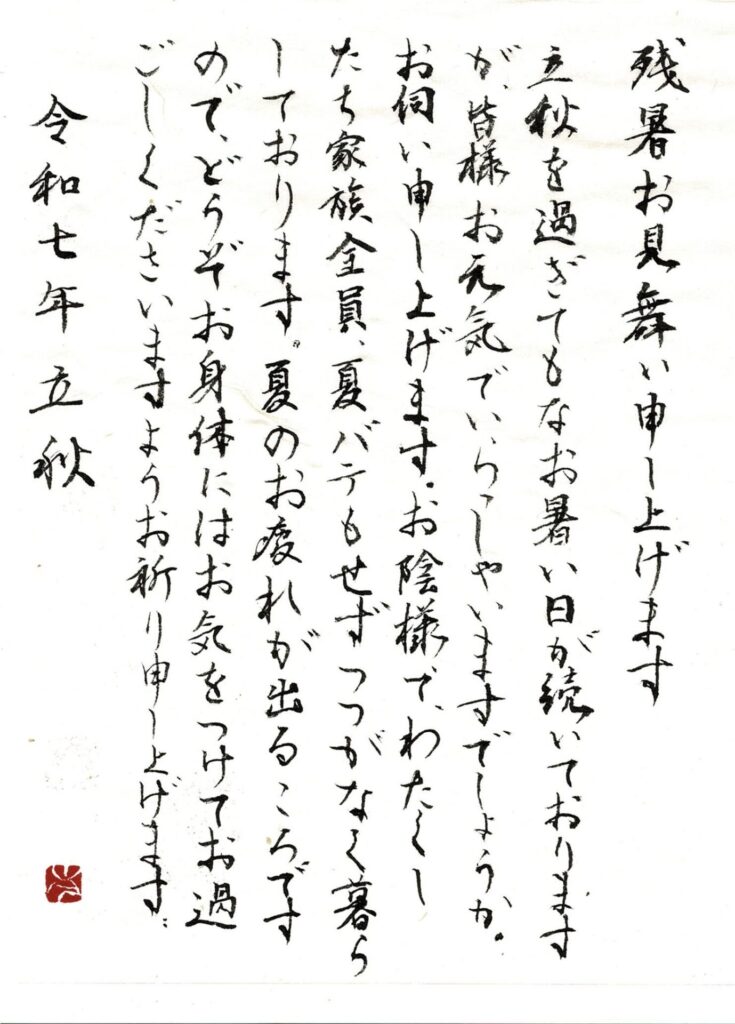 残暑お見舞い申し上げます
立秋を過ぎてもなお暑い日が続いております
が、皆様お元気でいらっしゃいますでしょうか。
お伺い申し上げます。お陰様で、わたくし
たち家族全員、夏バテもせずつつがなく暮ら
しております。夏のお疲れが出るころです
ので、どうぞお身体にはお気をつけてお過
ごしくださいますようお祈り申し上げます。
令和七年 立秋